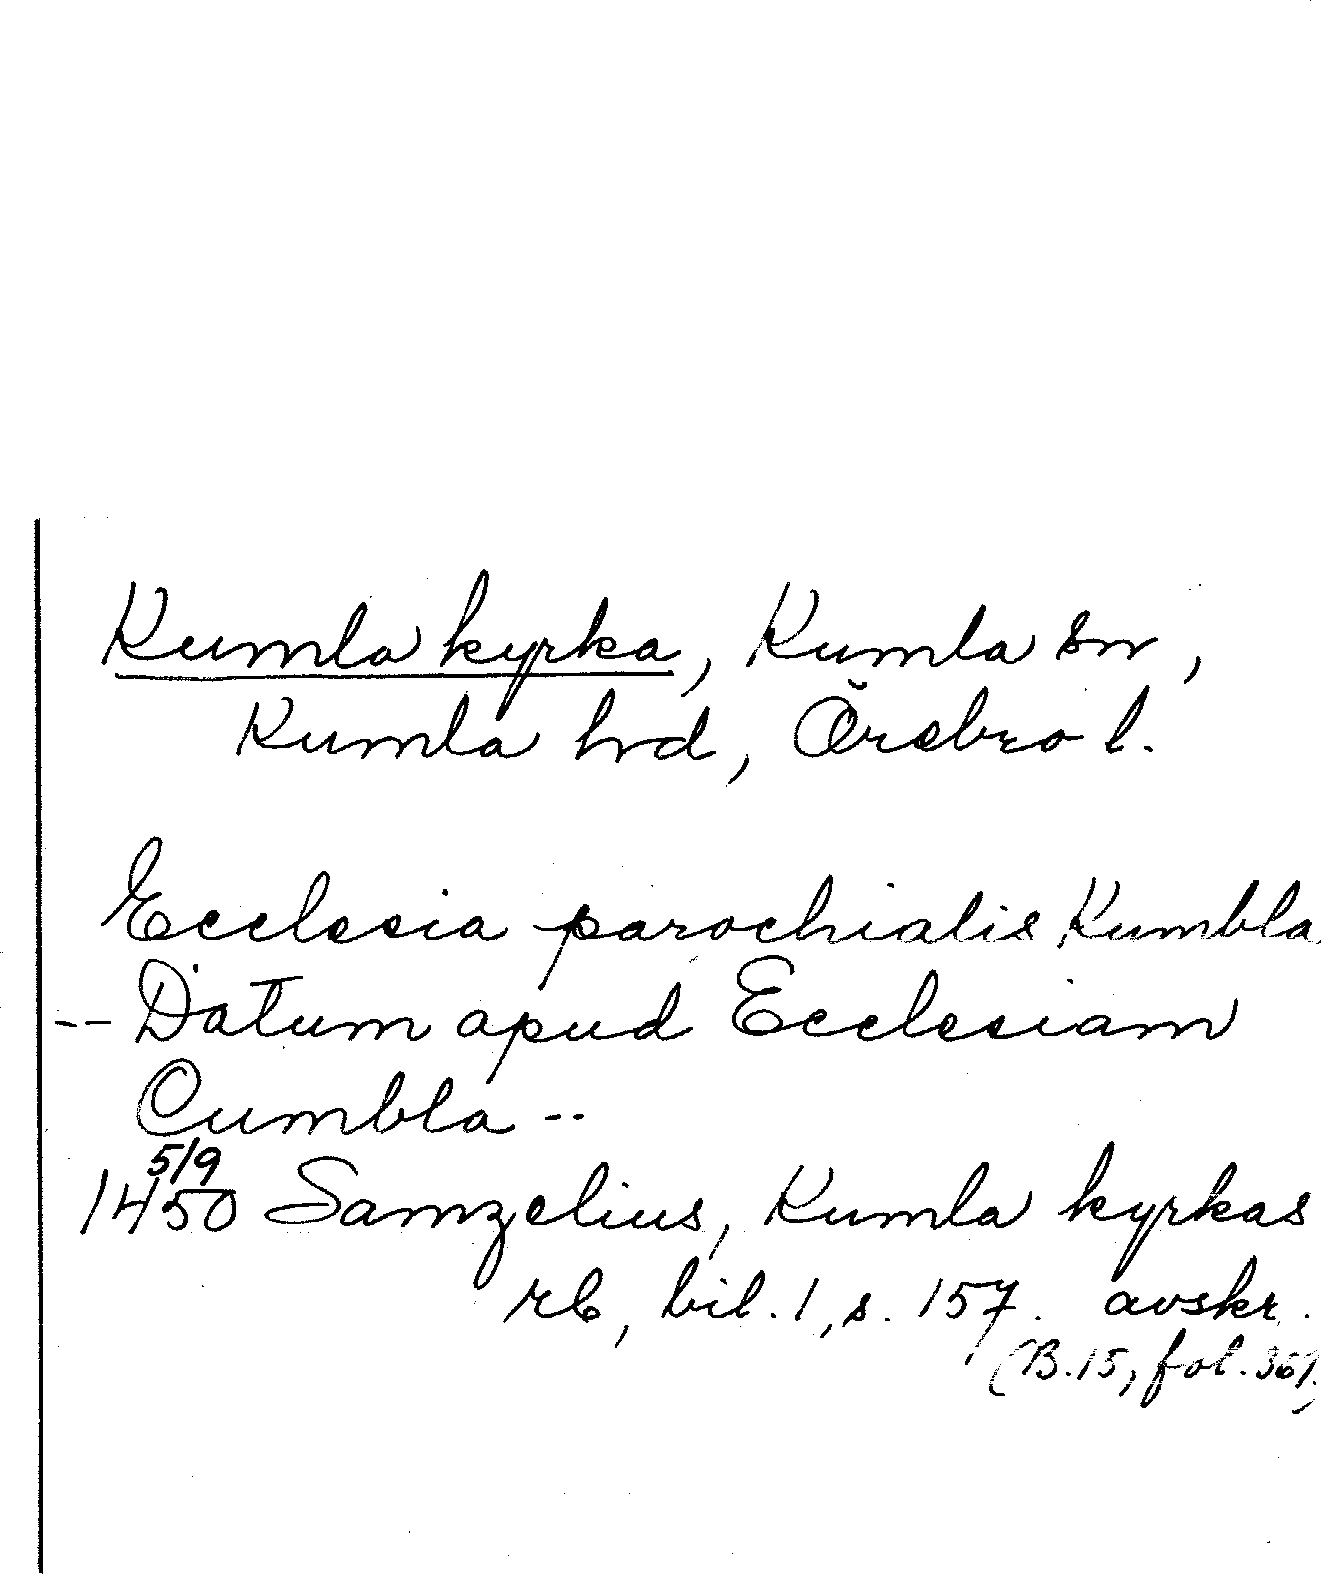 Kumla kyrka, Kumla sn,
Kumla hrd, Örebro l.
Ecclesia parochialis Kumbla
-- Datum apud Ecclesiam
Cumbla --
5/9
1450 Samzelius, Kumla kyrkas
rb, bil. 1, s. 157. avskr.
(B.15, fol. 361.)